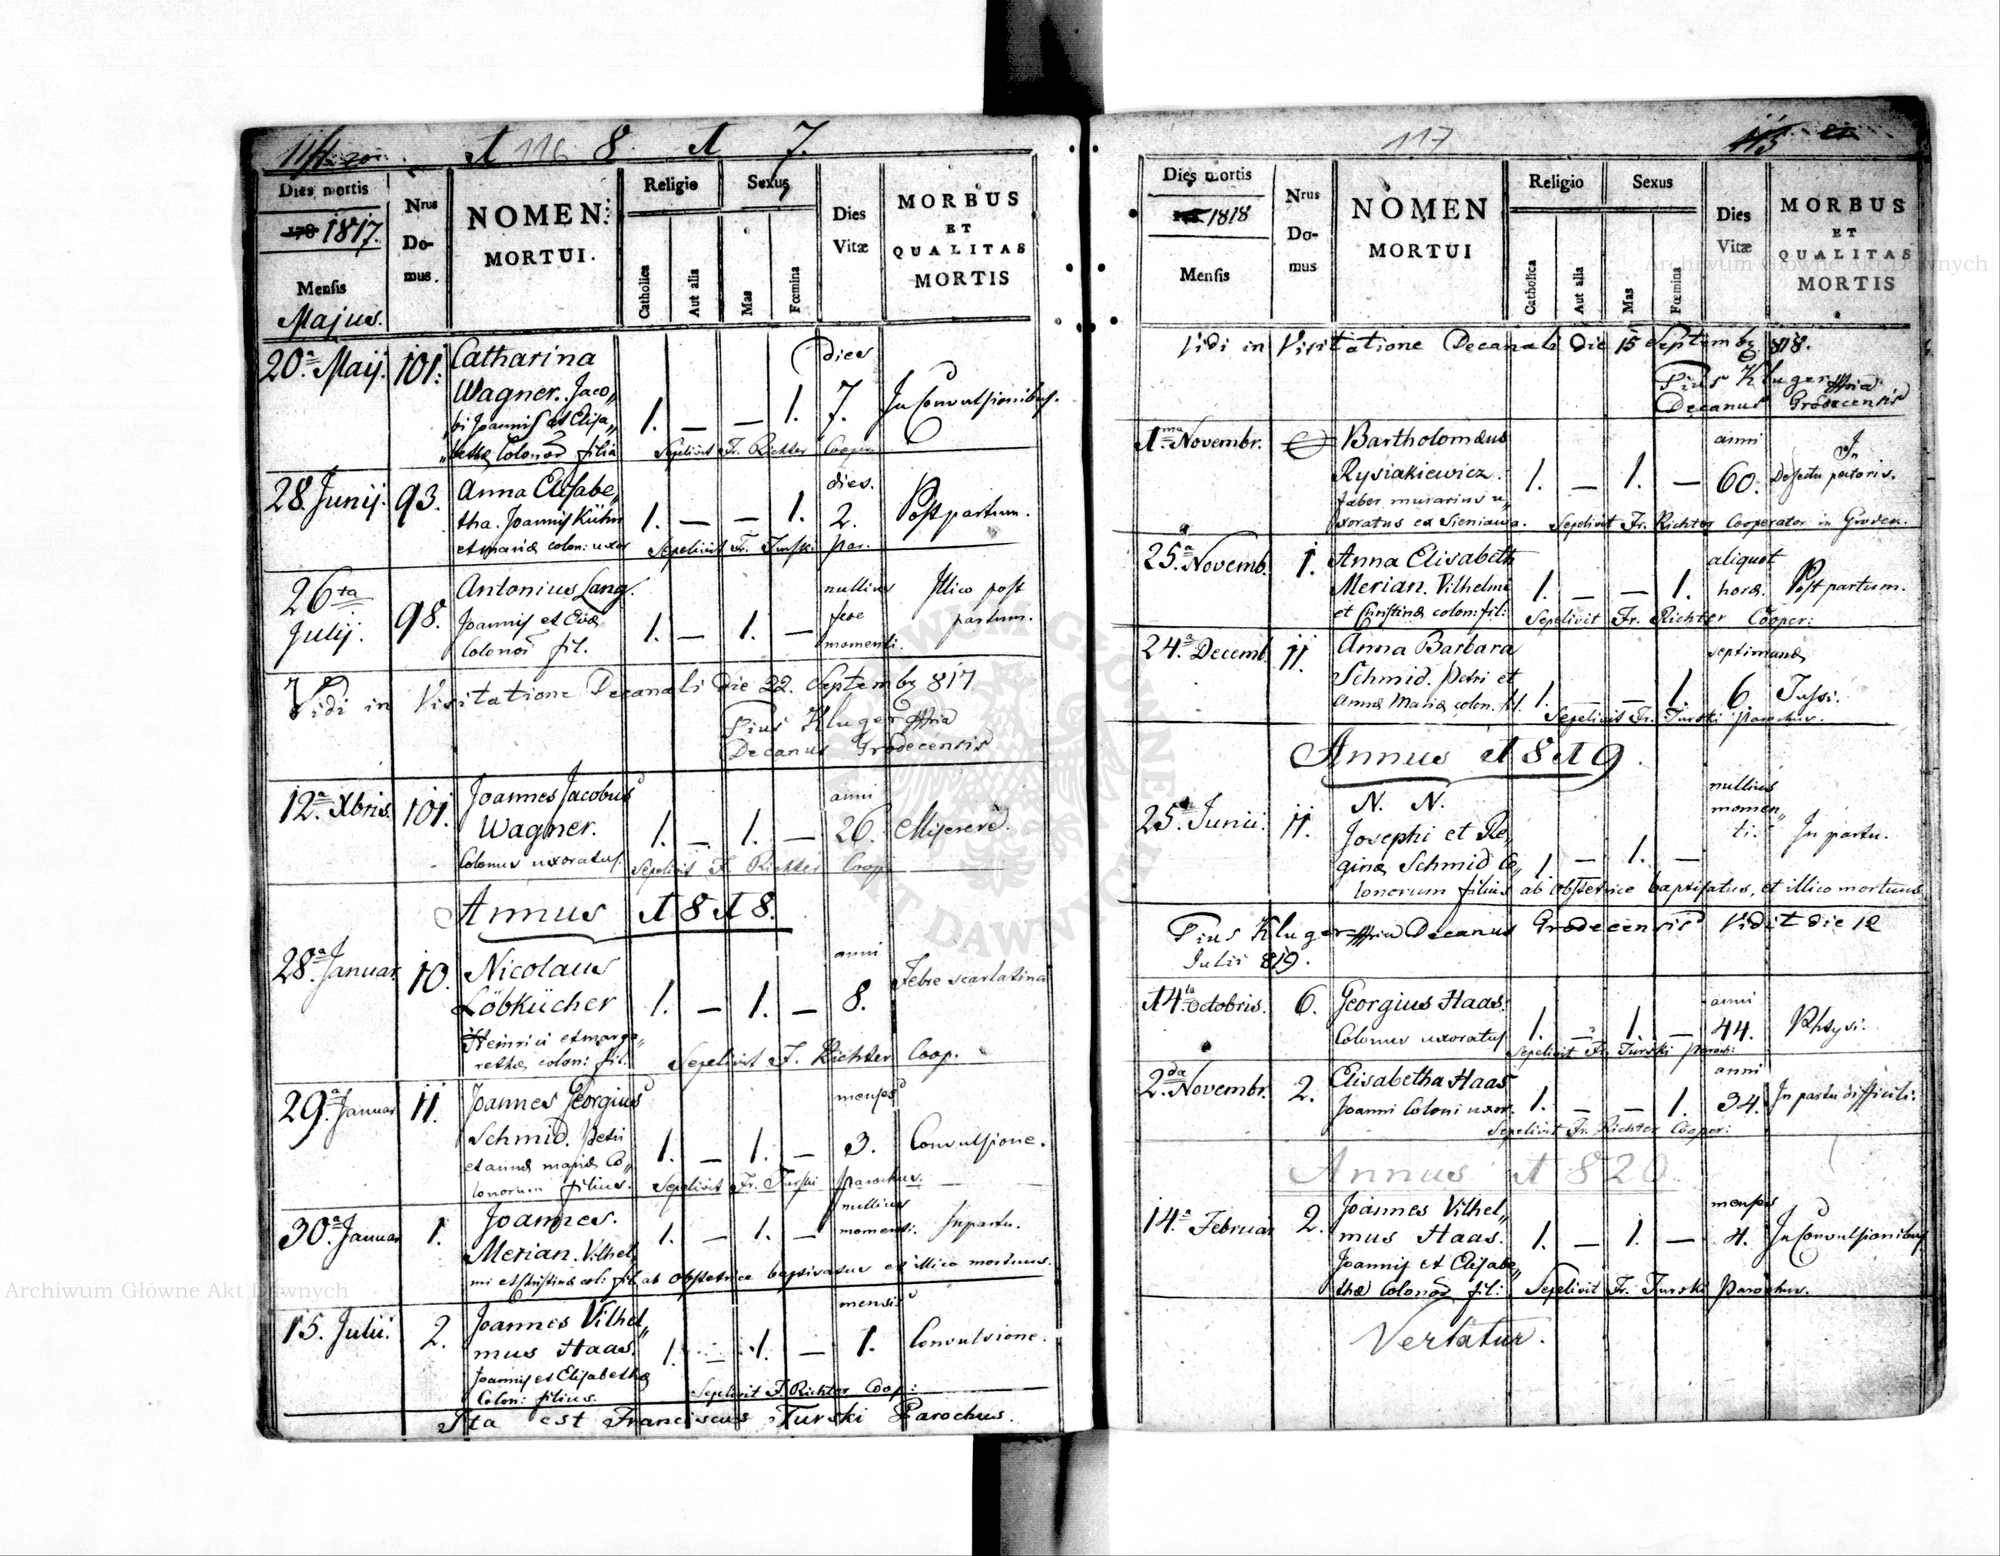 116
1 8 1 7.
Dies mortis
1817.
Mensis
Majus.
Nrus
Do-
mus.
NOMEN
MORTUI.
Religio
Catholica
Aut alia
Sexus
Mas
Fœmina
Dies
Vitæ
MORBUS
ET
QUALITAS
MORTIS
20.a Maij. 101. Catharina dies
Wagner. Jaco„ 1. — — 1. 7. In Convulsionibus.
bi Joannis et Elisa„
„bethæ Colonor filia Sepelivit Fr. Richter Cooper.
28. Junij. 93. Anna Elisabe„ dies.
tha. Joannis Kühn 1. — — 1. 2. Post partum.
et mariæ colon: uxor Sepelivit Fr. Turski Par.
26ta Antonius Lang. nullius Illico post
Julij. 98. Joannis et Evæ 1. — 1. — fere partum.
Colonor fil. momenti.
Vidi in Visitatione Decanali die 22. Septembr 817
Pius Kluger
Decanus Grodecensis
12.a Xbris. 101. Joannes Jacobus anni
Wagner. 1. — 1. — 26. Miserere.
Colonus uxoratus. Sepelivit F. Richter Coop.
Annus 1818.
28.a Januar. 10. Nicolaus anni
Löbkücher 1. — 1. — 8. Febre scarlatina
Heinrici et marga„
rethæ coloni fil. Sepelivit F. Richter Coop.
29.a Januar 11. Joannes Georgius menses
Schmid. Petri 1. — 1. — 3. Convulsione.
et annæ mariæ Co„
lonorum filius. Sepelivit Fr. Turski Parochus.
30.a Januar 1. Joannes. nullius
Merian. Vilhel„ 1. — 1. — momenti. In partu.
mi et Christinæ coli fil. ab obstetrice baptisatus et illico mortuus.
15. Julii. 2. Joannes Vilhel„ mensis
mus Haas. 1. — 1. — 1. Convulsione.
Joannis et Elisabethæ
Colon: filius. Sepelivit F. Richter Coop:
Ita est Franciscus Turski Parochus.
117
115
Dies mortis
1818
Mensis
Nrus
Do-
mus
NOMEN
MORTUI
Religio
Catholica
Aut alia
Sexus
Mas
Fœmina
Dies
Vitæ
MORBUS
ET
QUALITAS
MORTIS
Vidi in Visitatione Decanali die 15 Septembr 818.
Pius Kluger
Decanus Grodecensis
1.ma Novembr. Bartholomæus anni In
Rysiakiewicz. 1. — 1. — 60. Defectu pectoris.
faber murarius u„
xoratus ex Sieniawa. Sepelivit Fr. Richter Cooperator in Grodek.
25.a Novemb. 1. Anna Elisabeth aliquot
Merian. Vilhelmi 1. — — 1. horæ. Post partum.
et Christinæ colon: fil: Sepelivit Fr. Richter Cooper:
24.a Decemb. 11. Anna Barbara septimanæ
Schmid. Petri et 1. — 1. 6. Tussi.
Annæ Mariæ colon. fil. Sepelivit Fr. Turski Parochus.
Annus 1819.
N. N. nullius
25.a Junii. 11. Josephi et Re„ momen„
ginæ Schmid Co„ 1. — 1. — ti. In partu.
lonorum filius ab obstetrice baptisatus, et illico mortuus
Pius Kluger Decanus Grodecensis Vidit die 12
Julii 819.
14.ta Octobris. 6. Georgius Haas. anni
Colonus uxoratus 1. — 1. — 44. Phtysi.
Sepelivit Fr. Turski Paroch:
2.da Novembr. 2. Elisabetha Haas anni
Joanni Coloni uxor. 1. — — 1. 34. In partu difficili.
Sepelivit Fr. Richter Cooper:
Annus 1820
14.a Februar 2. Joannes Vilhel„ menses
mus Haas. 1. — 1. — 4. In Convulsionibus
Joannis et Elisabe„
thæ Colonor fil: Sepelivit Fr. Turski Parochus.
Vertatur.
Archiwum Główne Akt Dawnych
Archiwum Główne Akt Dawnych
ARCHIWUM GŁÓWNE AKT DAWNYCH